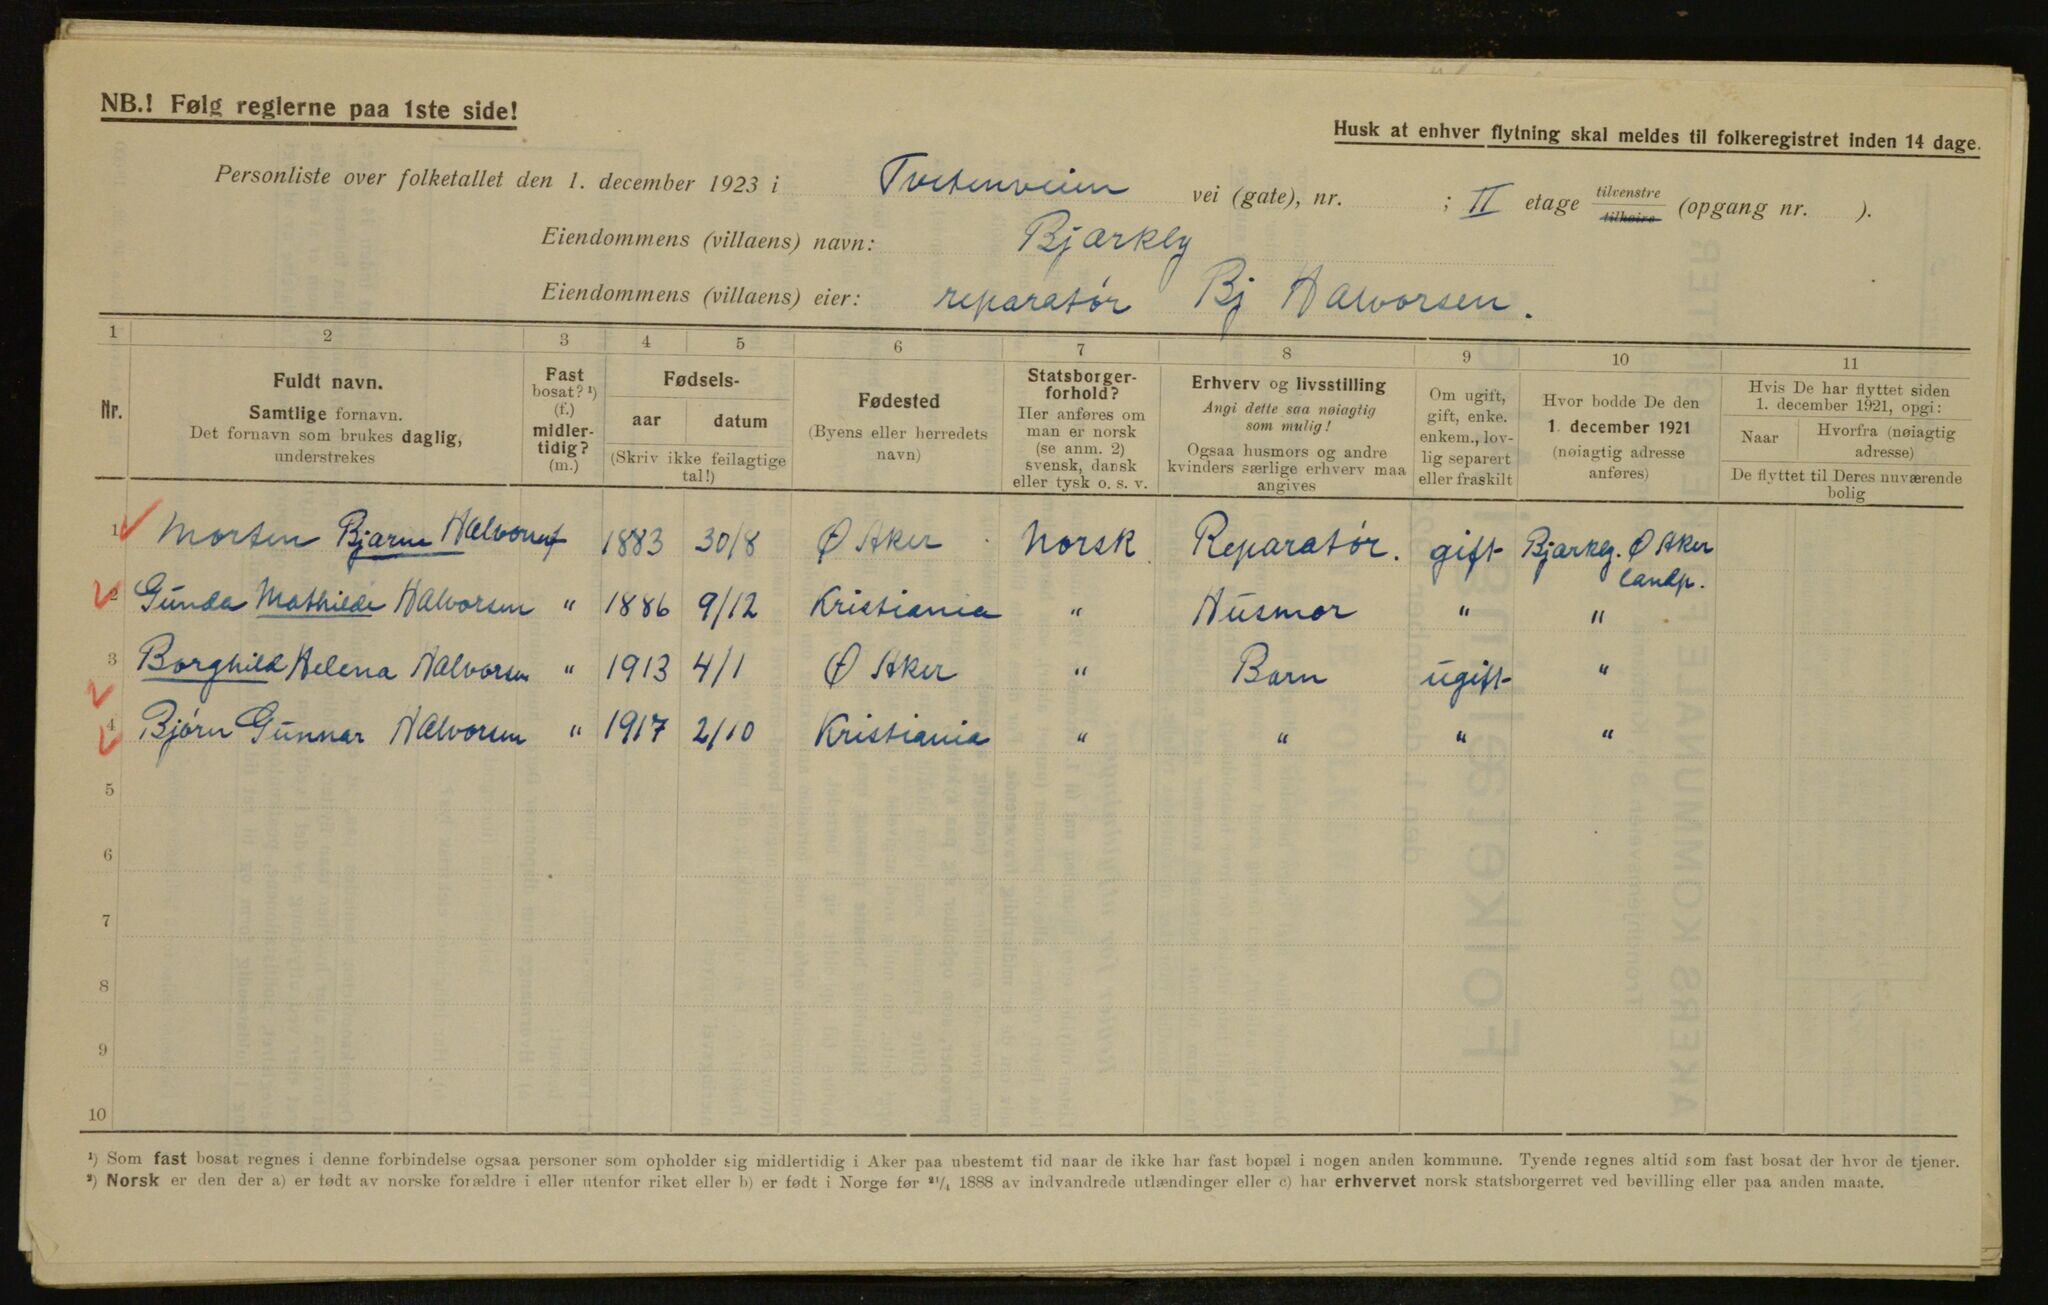 NB.! Følg reglerne paa 1ste side!
Husk at enhver flytning skal meldes til folkeregistret inden 14 dage.
Personliste over folketallet den 1. december 1923 i Tvetenveien vei (gate), nr. ; II etage tilvenstre tilhøire (opgang nr. ).
Eiendommens (villaens) navn: Bjarkly
Eiendommens (villaens) eier: reparatør Bj Halvorsen.
1 2 3 4 5 6 7 8 9 10 11
Nr.
Fuldt navn.
Samtlige fornavn.
Det fornavn som brukes daglig,
understrekes
Fast
bosat? ¹)
(f.)
midler-
tidig?
(m.)
Fødsels-
aar datum
(Skriv ikke feilagtige
tal!)
Fødested
(Byens eller herredets
navn)
Statsborger-
forhold?
Her anføres om
man er norsk
(se anm. 2)
svensk, dansk
eller tysk o. s. v.
Erhverv og livsstilling
Angi dette saa nøiagtig
som mulig!
Ogsaa husmors og andre
kvinders særlige erhverv maa
angives
Om ugift,
gift, enke.
enkem., lov-
lig separert
eller fraskilt
Hvor bodde De den
1. december 1921
(nøiagtig adresse
anføres)
Hvis De har flyttet siden
1. december 1921, opgi:
Naar
Hvorfra (nøiagtig
adresse)
De flyttet til Deres nuværende
bolig
1 Morten Bjarne Halvorsen f 1883 30/8 Ø Aker Norsk Reparatør. gift Bjarkly. Ø Aker
landp.
2 Gunda Mathilde Halvorsen " 1886 9/12 Kristiania " Husmor " "
3 Borghild Helena Halvorsen " 1913 4/1 Ø Aker " Barn ugift "
4 Bjørn Gunnar Halvorsen " 1917 2/10 Kristiania " " " "
5
6
7
8
9
10
¹) Som fast bosat regnes i denne forbindelse ogsaa personer som opholder sig midlertidig i Aker paa ubestemt tid naar de ikke har fast bopæl i nogen anden kommune. Tyende regnes altid som fast bosat der hvor de tjener.
²) Norsk er den der a) er født av norske forældre i eller utenfor riket eller b) er født i Norge før ²¹/₄ 1888 av indvandrede utlændinger eller c) har erhvervet norsk statsborgerret ved bevilling eller paa anden maate.